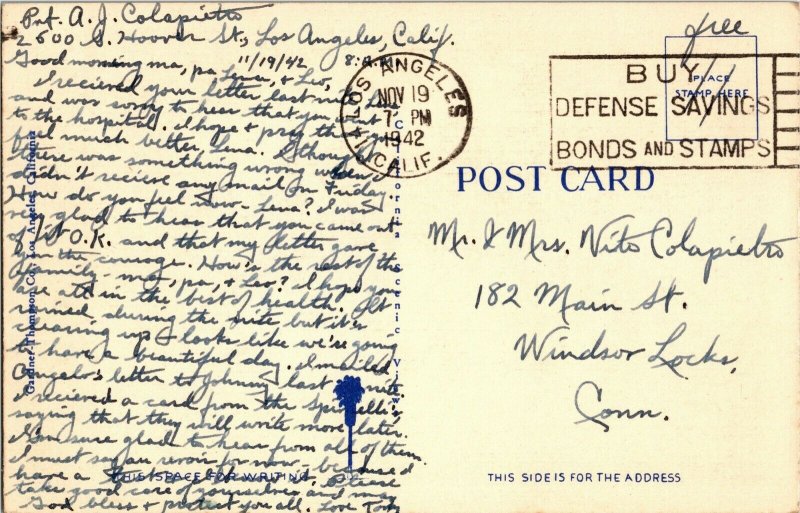 Pvt. A. J. Colapietro
2600 S. Hoover St., Los Angeles, Calif.
11/19/42 8:
Good morning ma, pa, Lena, & Leo,
I recieved your letter last nite Leo
and was sorry to hear that you went
to the hospital. I hope & pray that you
feel much better, Lena. I thought
there was something wrong when I
didn't recieve any mail on Friday.
How do you feel now - Lena? I was
very glad to hear that you came out
of it O.K. and that my letter gave
you the courage. How's the rest of the
family - ma, pa, & Leo? I hope you
are all in the best of health. It
rained during the nite but it's
clearing up & looks like we're going
to have a beautiful day. I mailed
Angelo's letter to Johnny last nite.
I recieved a card from the
saying that they will write more later.
I'm sure glad to hear from all of them.
I must say au revoir for now - because I
have a Please
take good care of yourselves and may
God bless & protect you all. Love Tony
Gardner-Thompson Co., Los Angeles, California
California Scenic View
THIS SPACE FOR WRITING
LOS ANGELES
NOV 19
7 PM
1942
CALIF.
BUY
DEFENSE SAVINGS
BONDS AND STAMPS
free
PLACE
STAMP HERE
POST CARD
Mr. & Mrs. Nito Colapietro
182 Main St.
Windsor Locks,
Conn.
THIS SIDE IS FOR THE ADDRESS